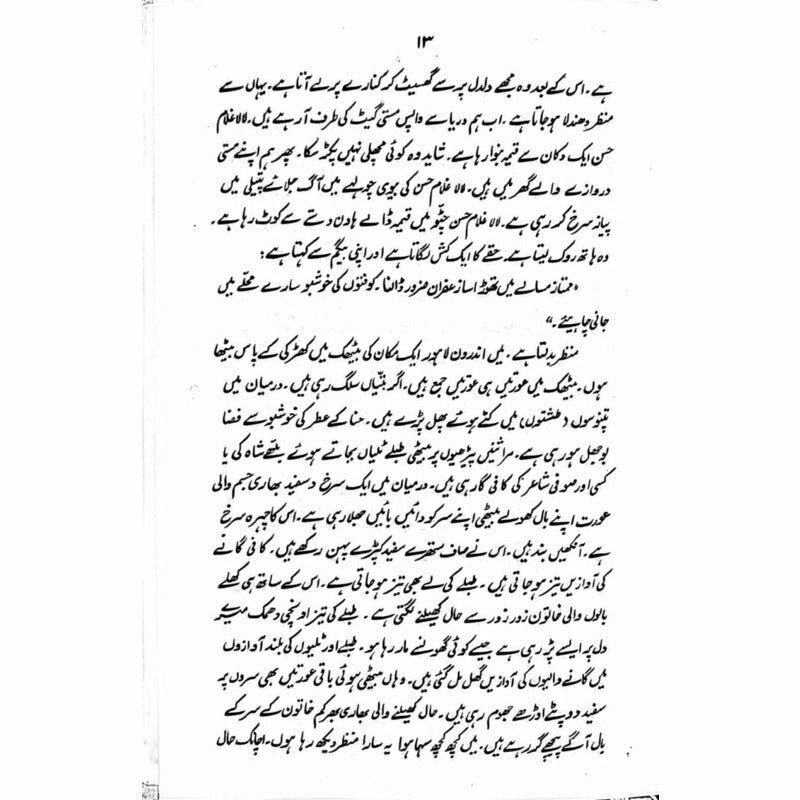 ۱۳
ہے۔ اس کے بعد وہ مجھے دلدل پر سے گھسیٹ کر کنارے پر لے آتا ہے۔ یہاں سے
منظر دھندلا ہو جاتا ہے۔ اب ہم دریا سے واپس مستی گیٹ کی طرف آ رہے ہیں۔ لالا غلام
حسن ایک دکان سے قیمہ بنوا رہا ہے۔ شاید وہ کوئی مچھلی نہیں پکڑ سکا۔ پھر ہم اپنے مستی
دروازے والے گھر میں ہیں۔ لالا غلام حسن کی بیوی چولہے میں آگ جلائے پتیلی میں
پیاز سرخ کر رہی ہے۔ لالا غلام حسن چٹو میں قیمہ ڈالے ہاون دستے سے کوٹ رہا ہے۔
وہ ہاتھ روک لیتا ہے۔ حقے کا ایک کش لگاتا ہے اور اپنی بیگم سے کہتا ہے:
"ممتاز مسالے میں تھوڑا سا زعفران ضرور ڈالنا۔ کوفتوں کی خوشبو سارے محلّے میں
جانی چاہیئے۔"
منظر بدلتا ہے۔ میں اندرون لاہور ایک مکان کی بیٹھک میں کھڑکی کے پاس بیٹھا
ہوں۔ بیٹھک میں عورتیں ہی عورتیں جمع ہیں۔ اگر بتیاں سلگ رہی ہیں۔ درمیان میں
تپنوسوں (طشتوں) میں کٹے ہوئے پھل پڑے ہیں۔ حنا کے عطر کی خوشبو سے فضا
بوجھل ہو رہی ہے۔ مراثنیں پیڑھیوں پر بیٹھی طبلے ٹلیاں بجاتے ہوئے بلھے شاہ کی یا
کسی اور صوفی شاعر کی کافی گا رہی ہیں۔ درمیان میں ایک سرخ و سفید بھاری جسم والی
عورت اپنے بال کھولے بیٹھی اپنے سر کو دائیں بائیں جھلا رہی ہے۔ اس کا چہرہ سرخ
ہے۔ آنکھیں بند ہیں۔ اس نے صاف ستھرے سفید کپڑے پہن رکھے ہیں۔ کافی گانے
کی آوازیں تیز ہو جاتی ہیں۔ طبلے کی لے بھی تیز ہو جاتی ہے۔ اس کے ساتھ ہی کھلے
بالوں والی خاتون زور زور سے حال کھیلنے لگتی ہے۔ طبلے کی تیز اونچی دھمک میرے
دل پر ایسے پڑ رہی ہے جیسے کوئی گھونسے مار رہا ہو۔ طبلے اور ٹلیوں کی بلند آوازوں
میں گانے والیوں کی آوازیں گھل مل گئی ہیں۔ وہاں بیٹھی ہوئی باقی عورتیں بھی سروں پر
سفید دوپٹے اوڑھے جھوم رہی ہیں۔ حال کھیلنے والی بھاری بھر کم خاتون کے سر کے
بال آگے پیچھے گر رہے ہیں۔ میں کچھ کچھ سہما ہوا یہ سارا منظر دیکھ رہا ہوں۔ اچانک حال